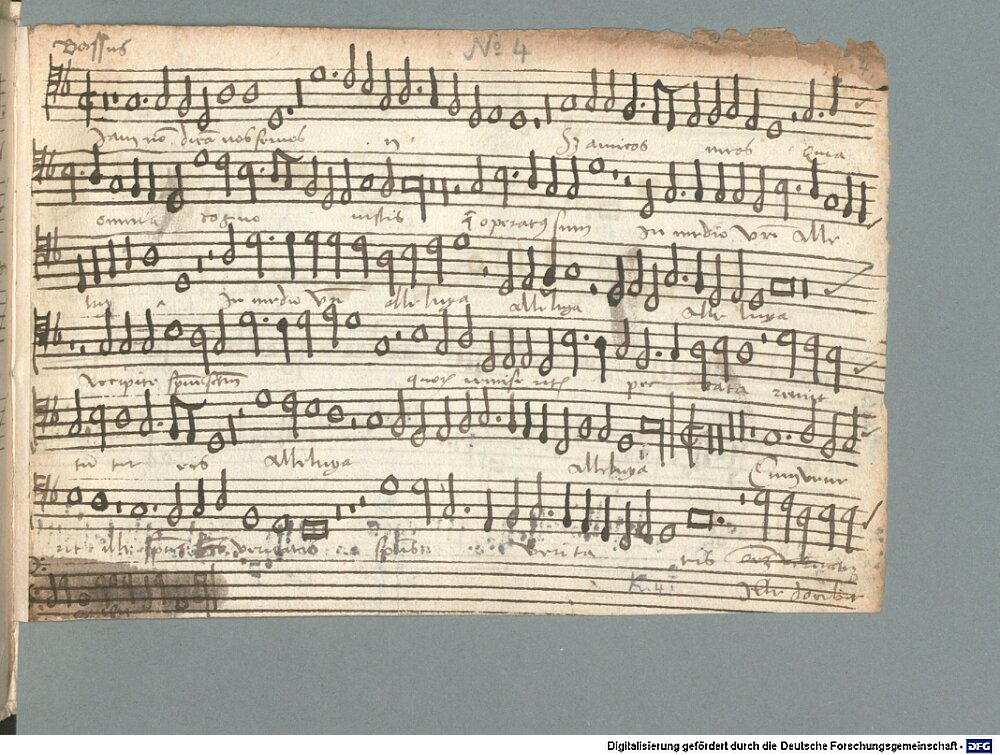 Bassus
No 4
Jam nō dicā vos servos ij sȝ amicos meos quia
omnia cogno vistis q̄ operatus sum In medio vr̄i Alle
luya In medio vr̄i alleluya Alleluya Alle luya
Accipite sp̄m sctm̄ quor remiseritis pec cata remit
tū tur eis Alleluya Alleluya Cum vene
rit ille sp̄us veritatis sp̄us verita tis
K. 4
Ille docebit
Digitalisierung gefördert durch die Deutsche Forschungsgemeinschaft - DFG